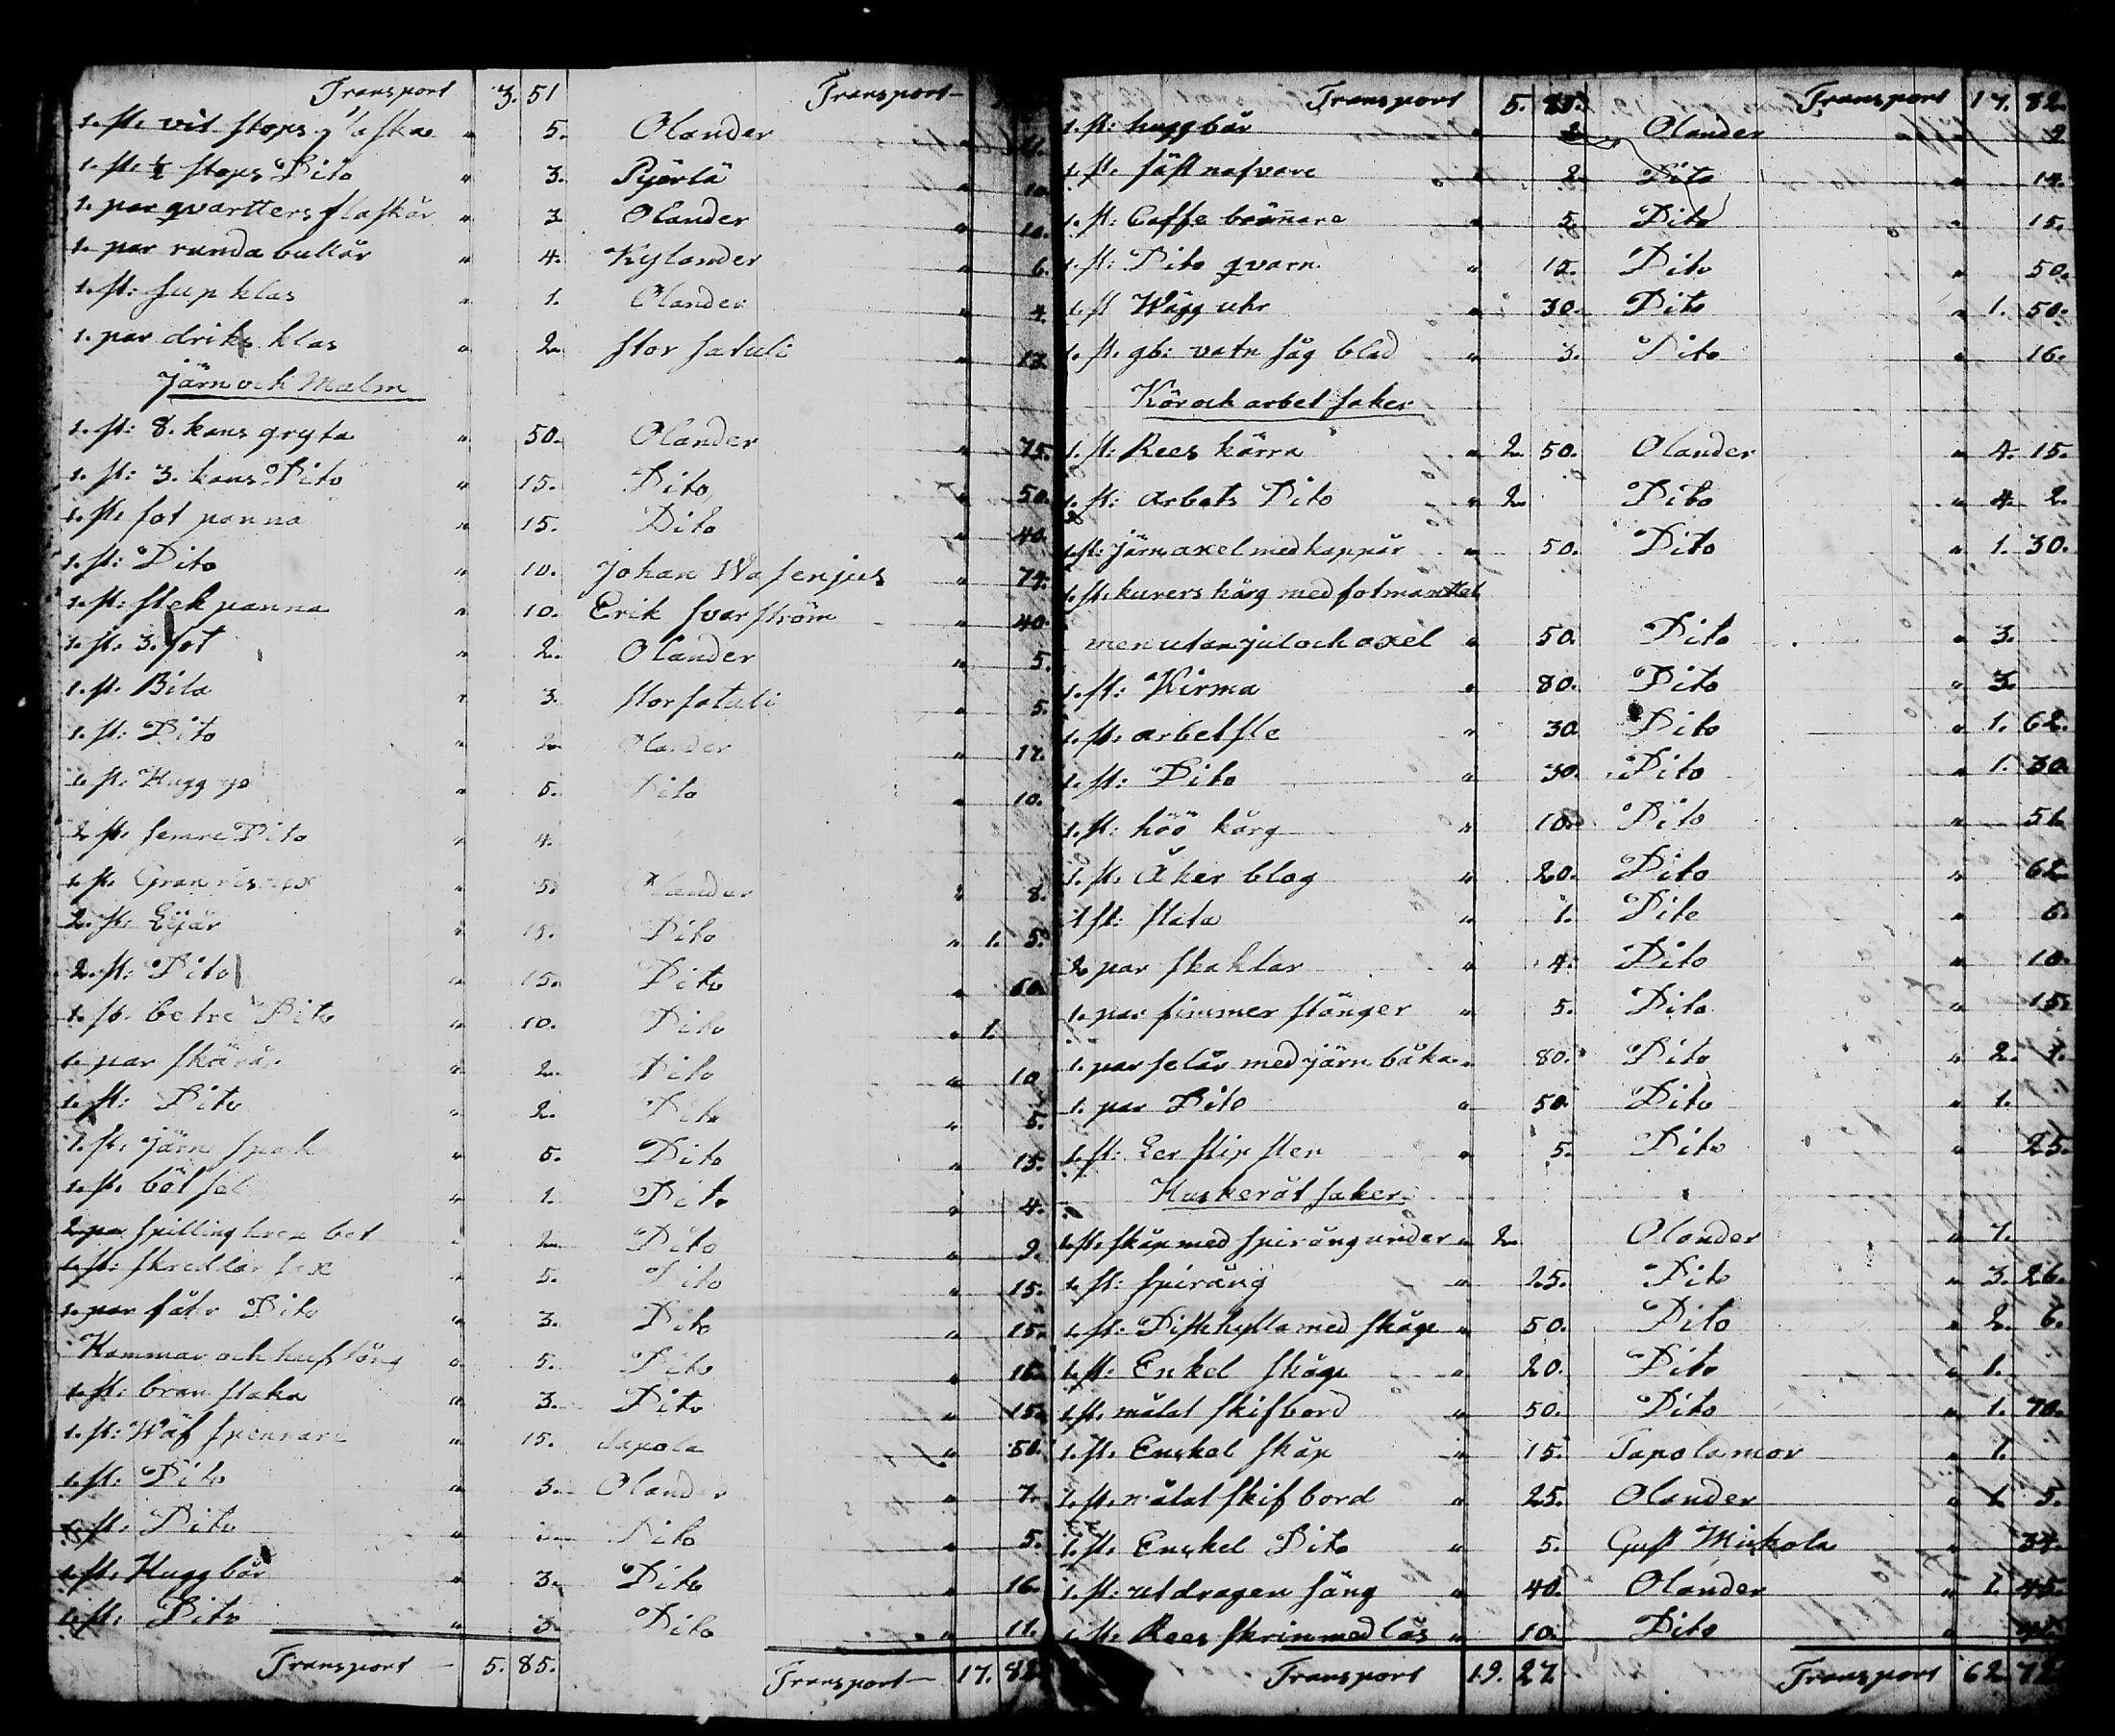 Transport 3. 51 Transport
1. st. vit stops flaska " 5. Olander " 11.
1. st. ½ stops Dito " 3. Pyörlä " 10.
1. par qvartters flaskår " 3 Olander " 10.
1. par runda bullår " 4. Kylander " 6.
1. st: sup klas " 1. Olander " 4.
1. par driks klas " 2 stor satuli " 13.
Järn och Malm
1. st: 8. kans gryta " 50. Olander " 75.
1. st: 3. kans Dito " 15. Dito " 50.
1. st. fot panna " 15. Dito " 40.
1. st: Dito " 10. Johan Wasenjus " 74.
1. st: stek panna " 10. Erik svarström " 40.
1. st. 3. fot " 2. Olander " 5.
1. st. Bila " 3. stor satuli " 5.
1. st: Dito " 2 Olander " 17.
1. st: Hugg yx " 5. Dito " 10.
2 st. semre Dito " 4.
1. st. Gran ris yx " 5. Olander " 8.
2. st. Lijär " 15. Dito " 1. 5.
2. st: Dito " 15. Dito " 60.
1. st. betre Dito " 10. Dito " 1.
1. par skärår " 2. Dito " 10
1. st: Dito " 2. Dito " 5.
1. st. järn spak " 5. Dito " 15.
1. st. böl sel " 1. Dito " 4.
2 par spilling bet " 2 Dito " 9.
1. st: skreddar sax " 5. Dito " 15.
1. par fåtr Dito " 3. Dito " 15.
Hammar och hufs tång " 5. Dito " 16.
1. st: bran staka " 3. Dito " 15.
1. st: Wäf spennare " 15. Sapola " 50.
1. st: Dito " 3. Olander " 7.
1. st. Dito " 3. Dito " 5.
1. st. Hugg bår " 3. Dito " 16.
1. st. Dito " 3 Dito " 11.
Transport 5. 85. Transport 17. 82
Transport 5. 85. Transport 17. 82.
1. st: hugg bår " 2 Olander " 9.
1. st. fäst nafvare " 2 Dito " 14.
1. st: Caffe brännare " 5 Dito " 15.
1. st: Dito qvarn " 15. Dito " 50.
1. st Wägg uhr " 30. Dito " 1. 50.
1. st. gb: vatn såg blad " 3. Dito " 16.
Kör och arbet saker
1. st: Rees kärra " 2. 50. Olander " 4. 15.
1. st: arbets Dito " 2. Dito " 4. 2.
1. st: järn axel med kappår " 50. Dito " 1. 30.
1. st. kurers kårg med fotmanttal
men utan jul och axel " 50. Dito " 3.
1. st: Kirma " 80. Dito " 3.
1. st. arbetsle " 30 Dito " 1. 62.
1. st: Dito " 30. Dito " 1. 30.
1. st: höö kårg " 10. Dito " 51.
1. st. Åker blog " 20. Dito " 62
1 st: slata " 1. Dito " 6.
2 par skaklar " 4. Dito " 10.
1. par simmer stånger " 5. Dito " 15.
1. par selår med järn båka " 80. Dito " 2. 1.
1. par Dito " 50. Dito " 1.
1. st: Ler slip sten " 5. Dito " 25.
Huskeråt saker
1. st. skåp med spirång under " 2 Olander " 7.
1. st: spirång " 25. Dito " 3. 26.
1. st: Diskhylla med skåp " 50. Dito " 2. 6.
1. st: Enkel skåp " 20. Dito " 1.
1. st. målat skifbord " 50. Dito " 1. 70.
1. st. Enskal skåp " 15. Sapolamor " 1.
1. st. målat skif bord " 25. Olander " 1. 5.
1. st. Enskel Dito " 5. Gust Mickola " 34.
1. st: utdragen säng " 40. Olander " 1. 45.
1. st. Rees skrin med lås " 10. Dito "
Transport 19. 27 Transport 62. 72